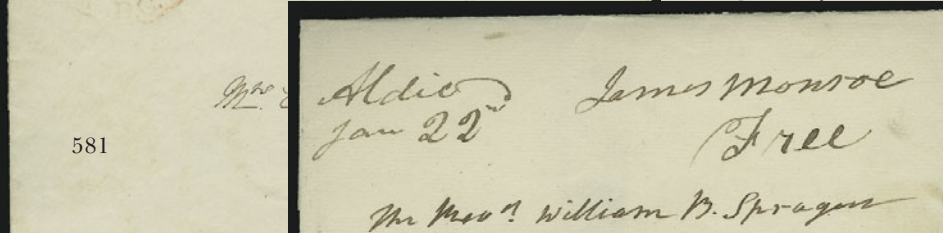 Mrs.
581
Aldie
Jan 22nd
James Monroe
Free
The Revd. William B. Sprague